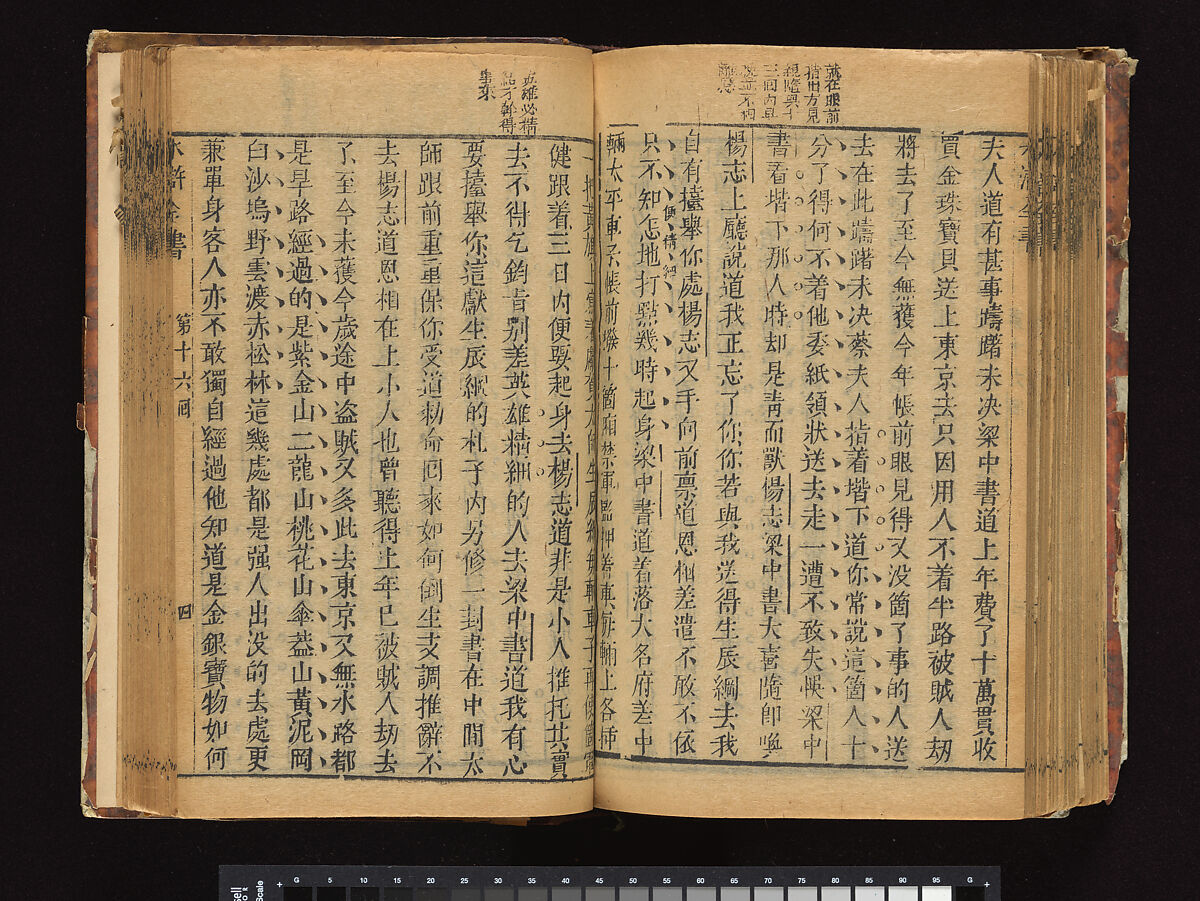 就在眼前
指出方見
夫人道有甚事躊躇未決梁中書道上年費了十萬貫收
買金珠寶貝送上東京去只因用人不着半路被賊人劫
將去了至今無獲今年帳前眼見得又沒箇了事的人送
去在此躊躇未決蔡夫人指着堦下道你常說這箇人十
分了得何不着他委紙領狀送去走一遭不致失悞梁中
書看堦下那人時却是青面獸楊志梁中書大喜隨即喚
楊志上廳說道我正忘了你你若與我送得生辰綱去我
自有擡舉你處楊志叉手向前禀道恩相差遣不敢不依
只不知怎地打點幾時起身梁中書道着落大名府差十
輛太平車子帳前撥十箇廂禁軍監押着車每輛上各插
英雄必精
細方幹得
事來
健跟着三日內便要起身去楊志道非是小人推托其實
去不得乞鈞旨別差英雄精細的人去梁中書道我有心
要擡舉你這獻生辰綱的札子內另修一封書在中間太
師跟前重重保你受道勑命回來如何倒生支調推辭不
去楊志道恩相在上小人也曾聽得上年已被賊人劫去
了至今未獲今歲途中盜賊又多此去東京又無水路都
是旱路經過的是紫金山二龍山桃花山傘葢山黃泥岡
白沙塢野雲渡赤松林這幾處都是强人出沒的去處更
兼單身客人亦不敢獨自經過他知道是金銀寶物如何
水滸全書
第十六回
四